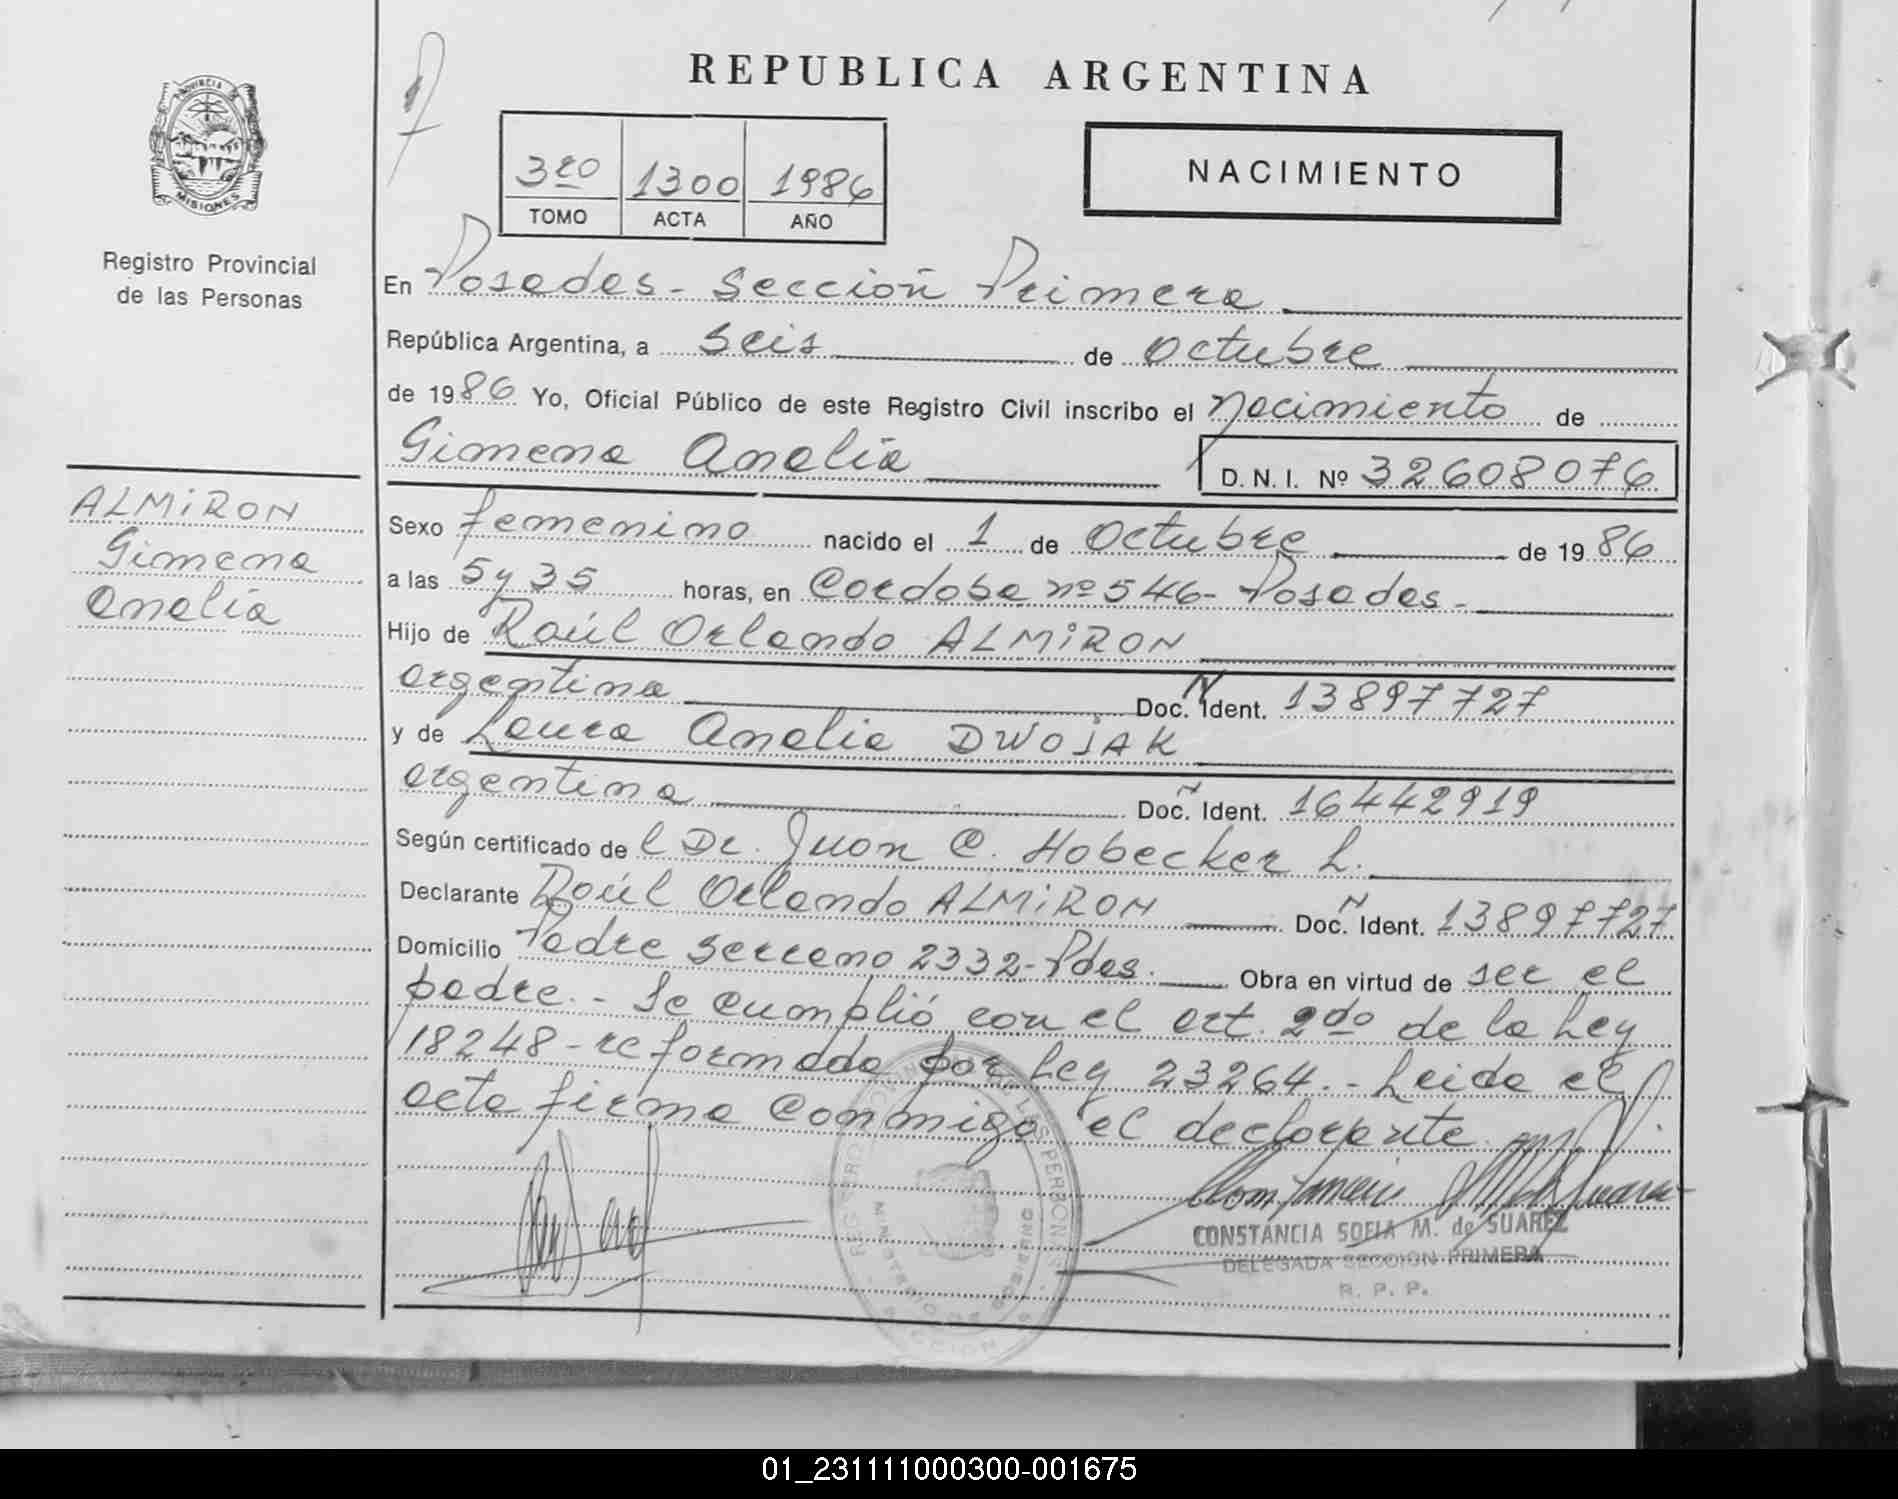 REPUBLICA ARGENTINA
PROVINCIA DE
MISIONES
Registro Provincial
de las Personas
3ro 1300 1986
TOMO ACTA AÑO
NACIMIENTO
En Posadas - Sección Primera
República Argentina, a seis de octubre
de 1986 Yo, Oficial Público de este Registro Civil inscribo el nacimiento de
Gimena Analía D. N. I. Nº 32608076
ALMiRON
Gimena
Analía
Sexo femenino nacido el 1 de Octubre de 1986
a las 5 y 35 horas, en Cordoba nº 546 - Posadas -
Hijo de Raúl Orlando ALMiRON
argentina Doc. N Ident. 13897727
y de Laura Analia DWOJAK
argentina Doc. N Ident. 16442919
Según certificado de l Dr. Juan C. Hobecker L.
Declarante Raúl Orlando ALMiRON Doc. N Ident. 13897727
Domicilio Padre Serrano 2332 - Pdas. Obra en virtud de ser el
padre. - Se cumplió con el art. 2do de la Ley
18248 - reformada por Ley 23264. - Leida el
acta firma conmigo el declarante.
CONSTANCIA SOFIA M. de SUAREZ
DELEGADA SECCION PRIMERA
R. P. P.
REGISTRO PROVINCIAL DE LAS PERSONAS
MINISTERIO DE GOBIERNO
SECCION
01_231111000300-001675